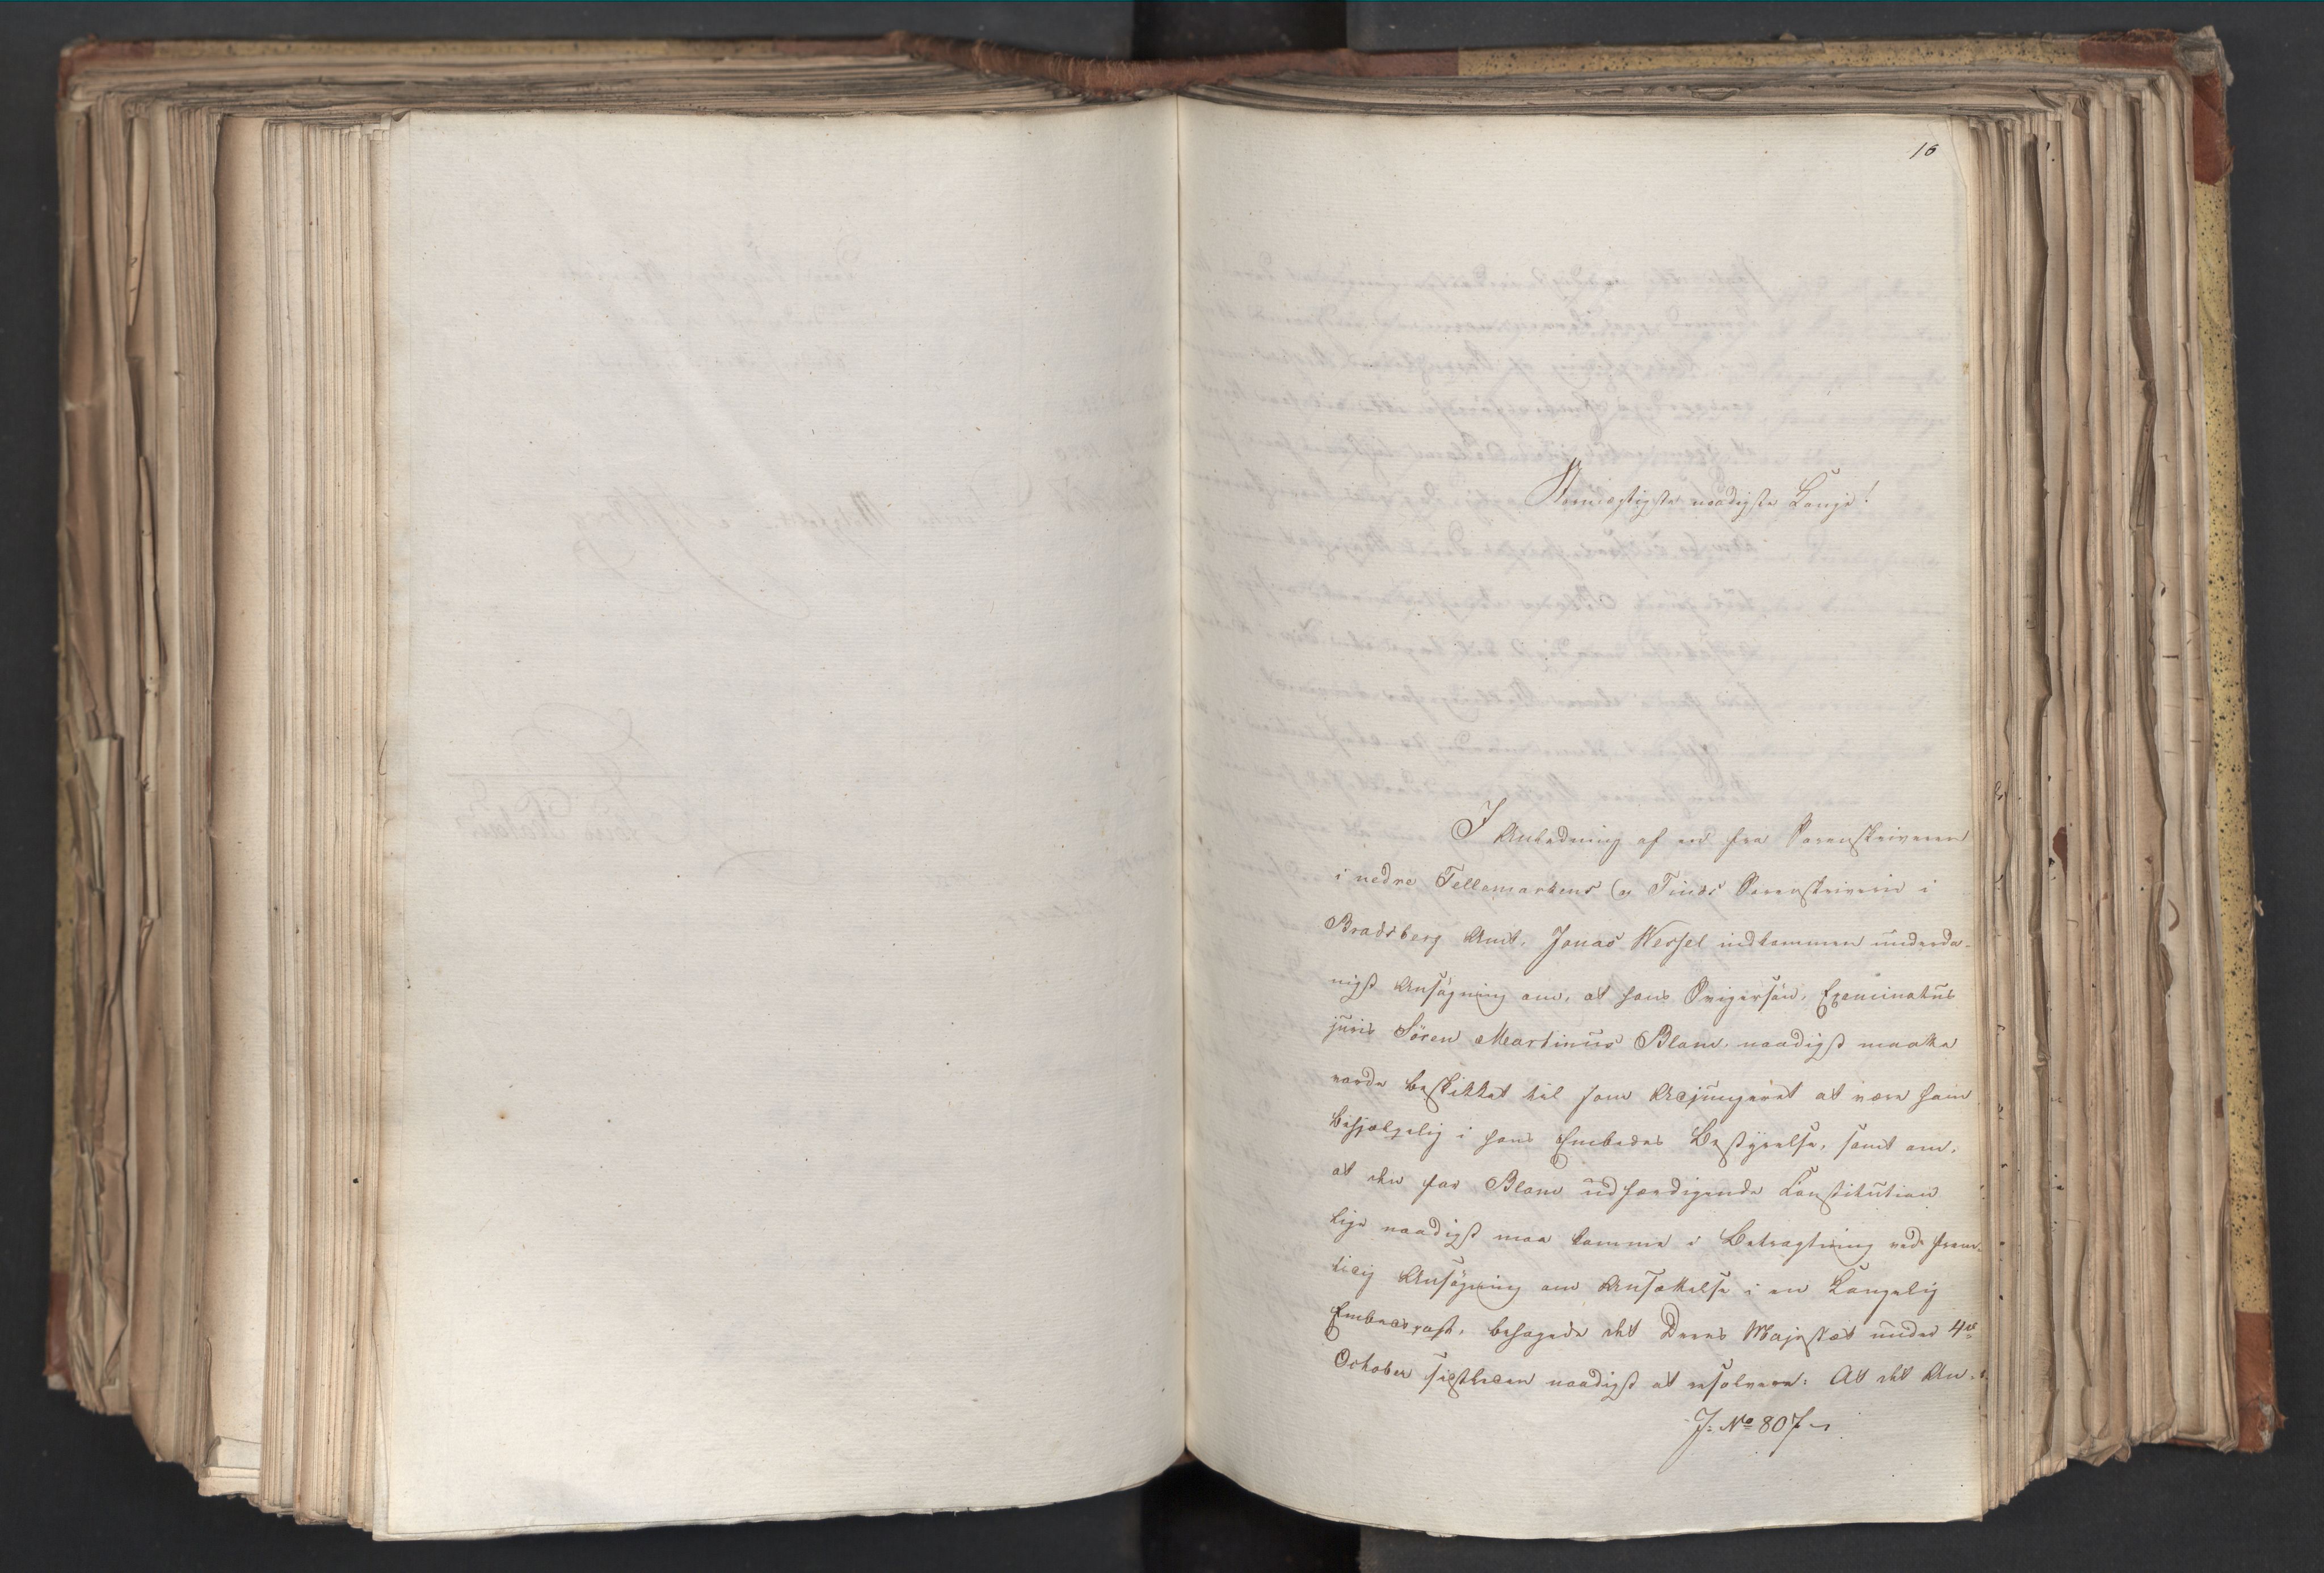 16
Stormægtigste naadigste Konge!
I Anledning af en fra Sorenskriveren
i nedre Tellemarkens og Tinds Sorenskriverie i
Bradsberg Amt, Jonas Wessel indkommen underda-
nigst Ansøgning om, at hans Svigersøn, Examinatus
juris Sören Martinus Blom, naadigst maatte
vorde beskikket til som Adjungeret at være ham
behjælpelig i hans Embedes Bestyrelse, samt om,
at den for Blom udfærdigende Constitution
lige naadigst maa komme i Betragtning ved frem-
tidig Ansøgning om Ansættelse i en Kongelig
Embedspost, behagede det Deres Majestæt under 4de
October sidstleden naadigst at resolvere: At det An-
J: No 807